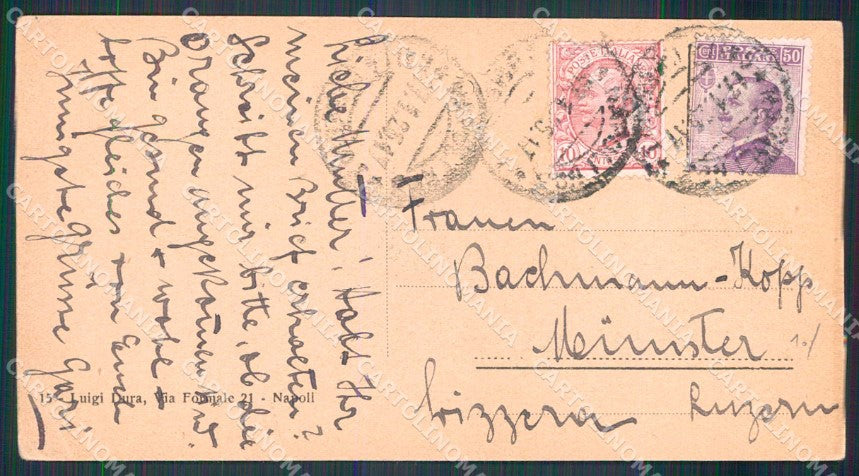 Liebe Mutter! Habt Ihr
meinen Brief erhalten?
Schreibt mir bitte, ob die
Orangen angekommen sind.
Bin gesund & wohl &
hoffe gleiches von Euch
Innigste Grüsse
Frauen
Bachmann-Kopp
Münster
Luzern
Svizzera
15 - Luigi Dura, Via Foonjale 21 - Napoli
POSTE ITALIANE
10 10
50
CARTOLINOMANIA